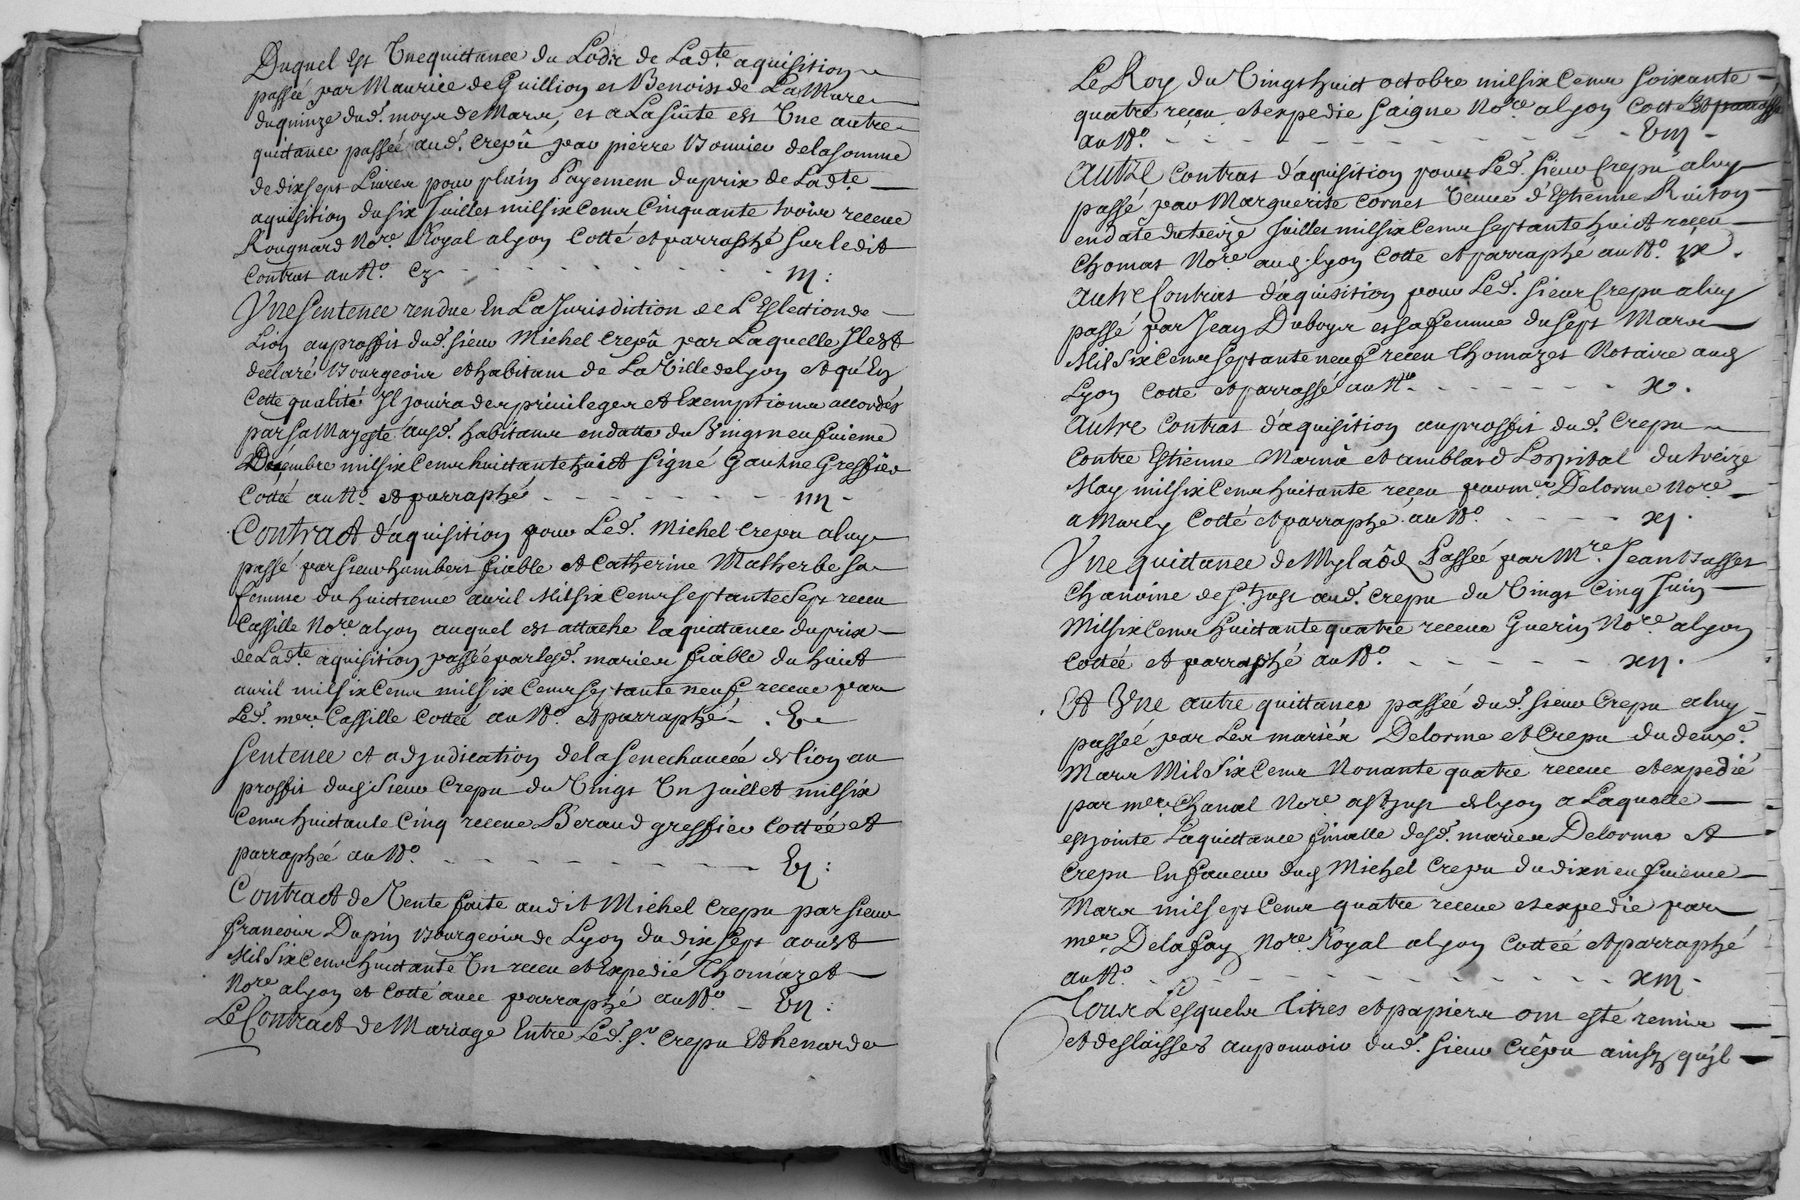 Duquel est Vne quittance du Lodz de Ladte aquisition
passée par Maurice de Guillion et Benoist de La Mure
du quinze dud. moys de Mars, et a La suitte est Vne autre
quittance passée aud. Crepû par pierre Bonnier de la somme
de dix sept Livres pour plain Payement du prix de Ladte
aquisition du six Juillet mil six Cens Cinquante trois receue
Rougnard Nore Royal a lyon Cotté et parraphé sur le dit
Contrat au No. m :
Vne sentence rendue En La Jurisdiction de L'Eslection de
Lion au proffit dud. sieur Michel Crepû par Laquelle Il est
declaré Bourgeois et habitant de La Ville de lyon et qu'En
Cette qualité Il jouira des priuileges et Exemptions accordés
par Sa Mageste ausd. habitans en datte du Vingt neufuieme
Décembre mil six Cens huittante huict signé Gaultne Greffier
Cotté au No. et parraphé iiii
Contract d'aquisition pour Led. Michel Crepu a luy
passé par sieur humbert fiable et Catherine Matherbe sa
femme du huictieme auril Mil six Cens septante Sept receu
Cassille Nore a lyon auquel est attaché la quittance du prix
de Ladte aquisition passée par lesd. mariés fiable du huict
auril mil six Cens mil six Cens septante neuf receue par
Led. mere Cassille Cottée au No. et parraphé V
Sentence et adjudication de la Senechaucée de lion au
proffit dud. Sieur Crepu du Vingt Vn Juillet mil six
Cens huictante Cinq receue Beraud greffier Cottée et
parraphée au No. Vj :
Contract de Vente faite audit Michel Crepu par Sieur
francois Dupin Bourgeois de Lyon du dix sept aoust
Mil Six Cens huictante Vn receu et Expedié Thomazet
Nore a lyon et Cotté auec parraphé au No Vij :
Le Contract de Mariage Entre Led. Sr. Crepu
Le Roy du Vingt huict octobre mil six Cens soixante
quatre receu et expedie saigne Nore a lyon Cotte
au No. Viij
Autre Contrat d'aquisition pour Led. Sieur Crepu a luy
passé par Marguerite Cornet Veuue d'Estienne Ruiton
en date du treize Juillet mil six Cens septante huict receu
Chomat Nore aud. lyon Cotte et parraphé au No. ix .
Autre Contrat d'aquisition pour Led. sieur Crepu a luy
passé par Jean Duboys et sa femme du sept Mars
Mil Six Cens septante neuf receu Thomazet Notaire aud.
Lyon Cotté et parraffé au No x .
Autre Contrat d'aquisition au proffit dud. Crepu
Contre Estienne Marnâ et amblard Lospital du treize
May mil six Cens huitante reçeu par mer Delorme Nore
a Marly Cotté et parraphé au No. xj .
Vne quittance de Mylaôd Passée par Mre Jean
Chanoine de St. Just aud. Crepu du Vingt Cinq Juin
Mil six Cens huittante quatre receue Guerin Nore a lyon
Cottée et parraphé au No. xij .
Et Vne autre quittance passée dud. sieur Crepu a luy
passée par Les mariés Delorme et Crepu du deuxe.
Mars Mil Six Cens Nonante quatre receue et expedié
par mer Chanal Nore a St Just de Lyon a Laquelle
est jointe La quittance finalle desd. mariés Delorme et
Crepu En faueur dud. Michel Crepu du dix neufuieme
Mars mil sept Cens quatre receue et expedié par
mer Delafay Nore Royal a lyon Cottée et parraphé
au No. xiij .
Tous Lesquels titres et papiers ont esté remis
et deslaissés au pouuoir dud. Sieur Crêpu ainsy qu'jl